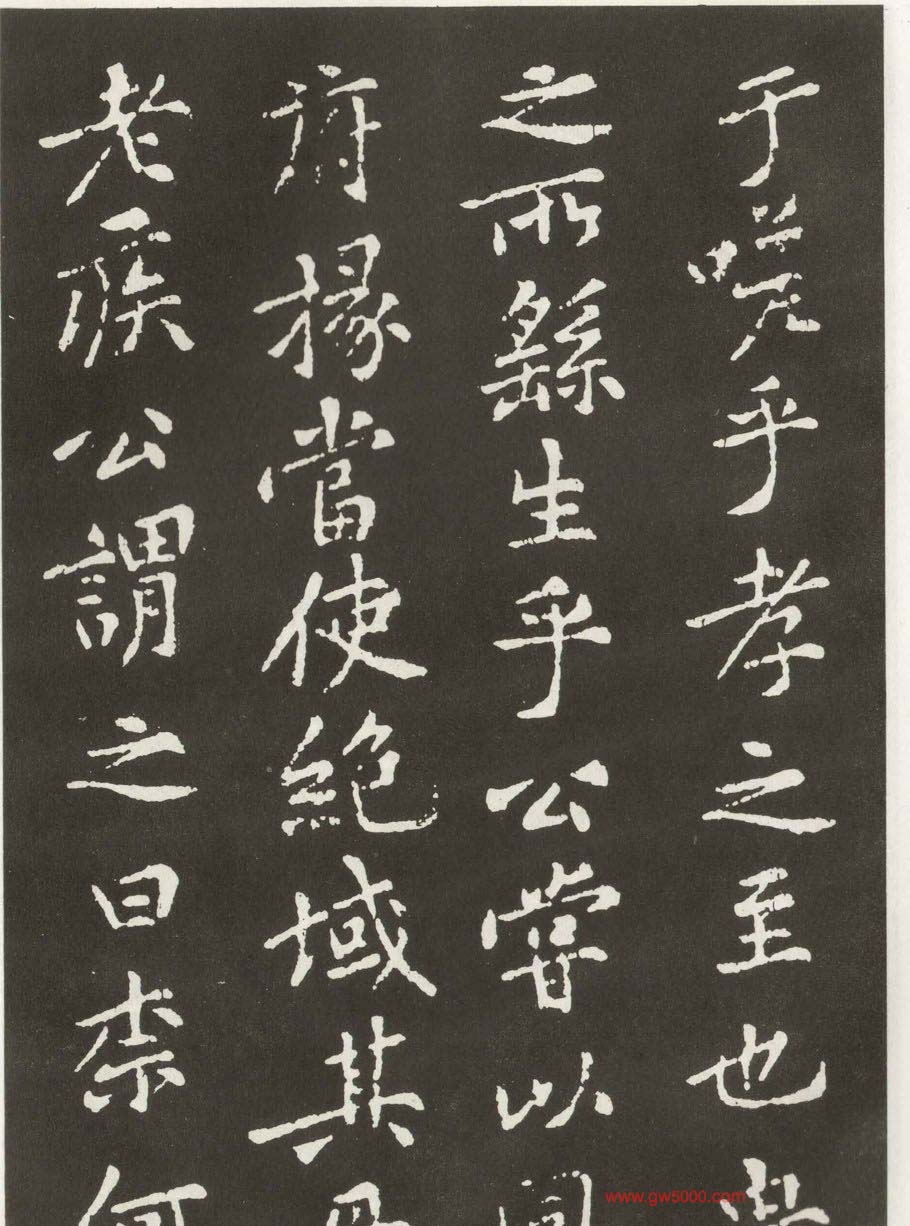 于嗟乎孝之至也
之所繇生乎公甞以同
府掾當使絶域其母
老疾公謂之曰柰何
www.gw5000.com